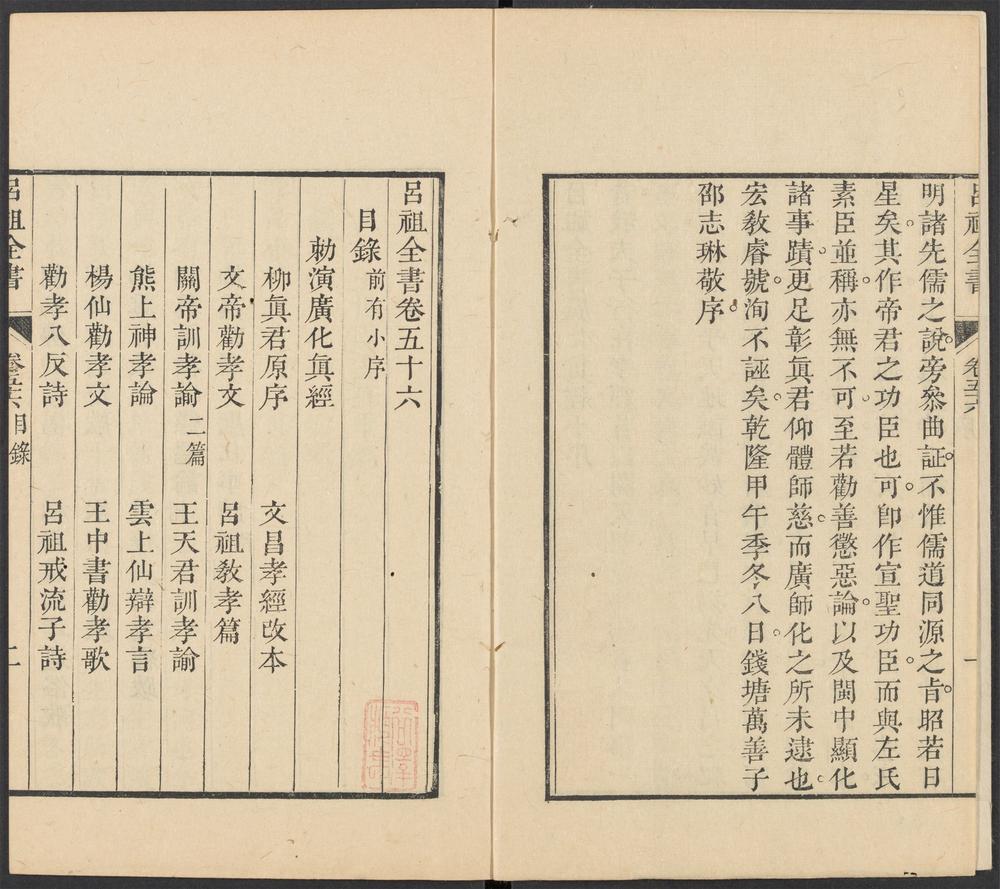 呂祖全書
卷五六
一
明諸先儒之說。旁叅曲証。不惟儒道同源之旨。昭若日
星矣。其作帝君之功臣也可。卽作宣聖功臣。而與左氏
素臣並稱。亦無不可。至若勸善懲惡論。以及閩中顯化
諸事蹟。更足彰眞君仰體師慈。而廣師化之所未逮也。
宏敎睿號。洵不誣矣。乾隆甲午季冬八日。錢塘萬善子
邵志琳敬序。
呂祖全書卷五十六
目錄 前有小序
勅演廣化眞經
柳眞君原序 文昌孝經改本
文帝勸孝文 呂祖敎孝篇
關帝訓孝諭 二篇 王天君訓孝諭
熊上神孝論 雲上仙辯孝言
楊仙勸孝文 王中書勸孝歌
勸孝八反詩 呂祖戒流子詩
呂祖全書
卷五六目錄
二